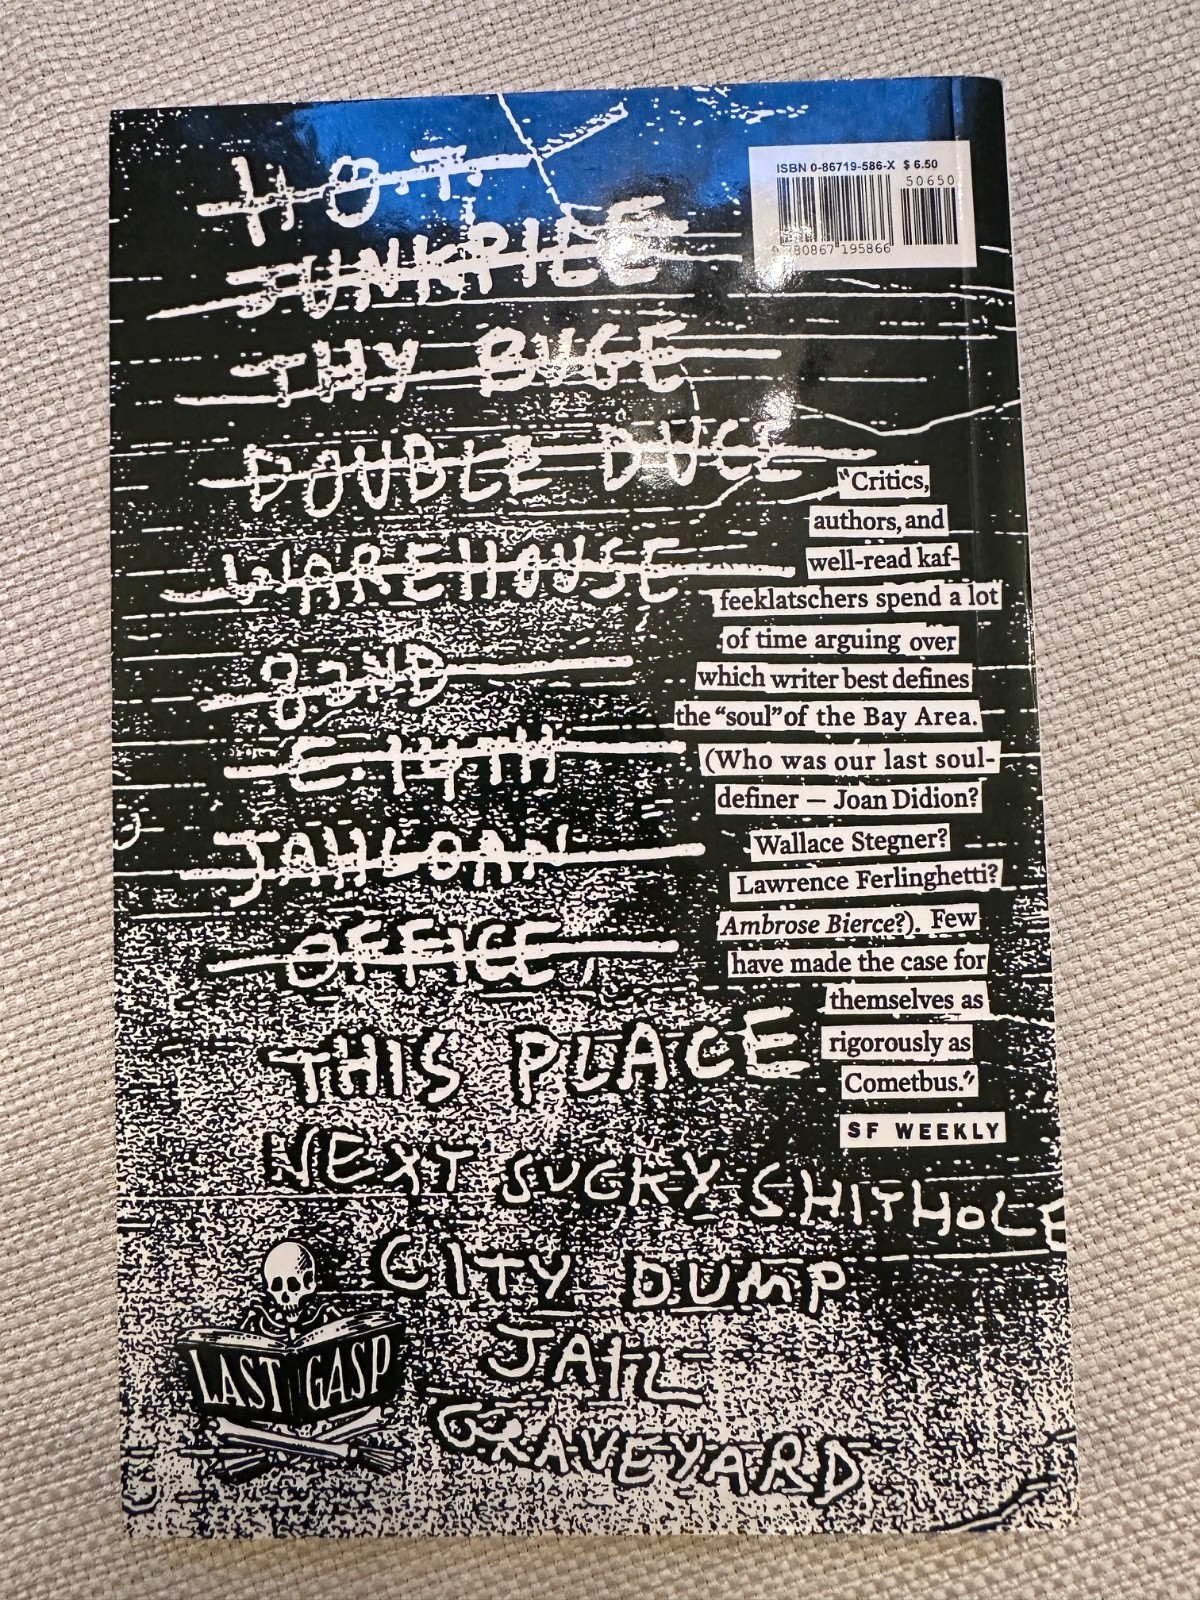 ISBN 0-86719-586-X $ 6.50
50650
9 780867 195866
H.O.T.
JUNKPILE
THY BUGE
DOUBLE DUCE
WAREHOUSE
82ND
E. 14TH
JAHLOAN
OFFICE
THIS PLACE
NEXT SUCKY SHITHOLE
CITY DUMP
JAIL
GRAVEYARD
"Critics,
authors, and
well-read kaf-
feeklatschers spend a lot
of time arguing over
which writer best defines
the "soul" of the Bay Area.
(Who was our last soul-
definer — Joan Didion?
Wallace Stegner?
Lawrence Ferlinghetti?
Ambrose Bierce?). Few
have made the case for
themselves as
rigorously as
Cometbus."
SF WEEKLY
LAST GASP